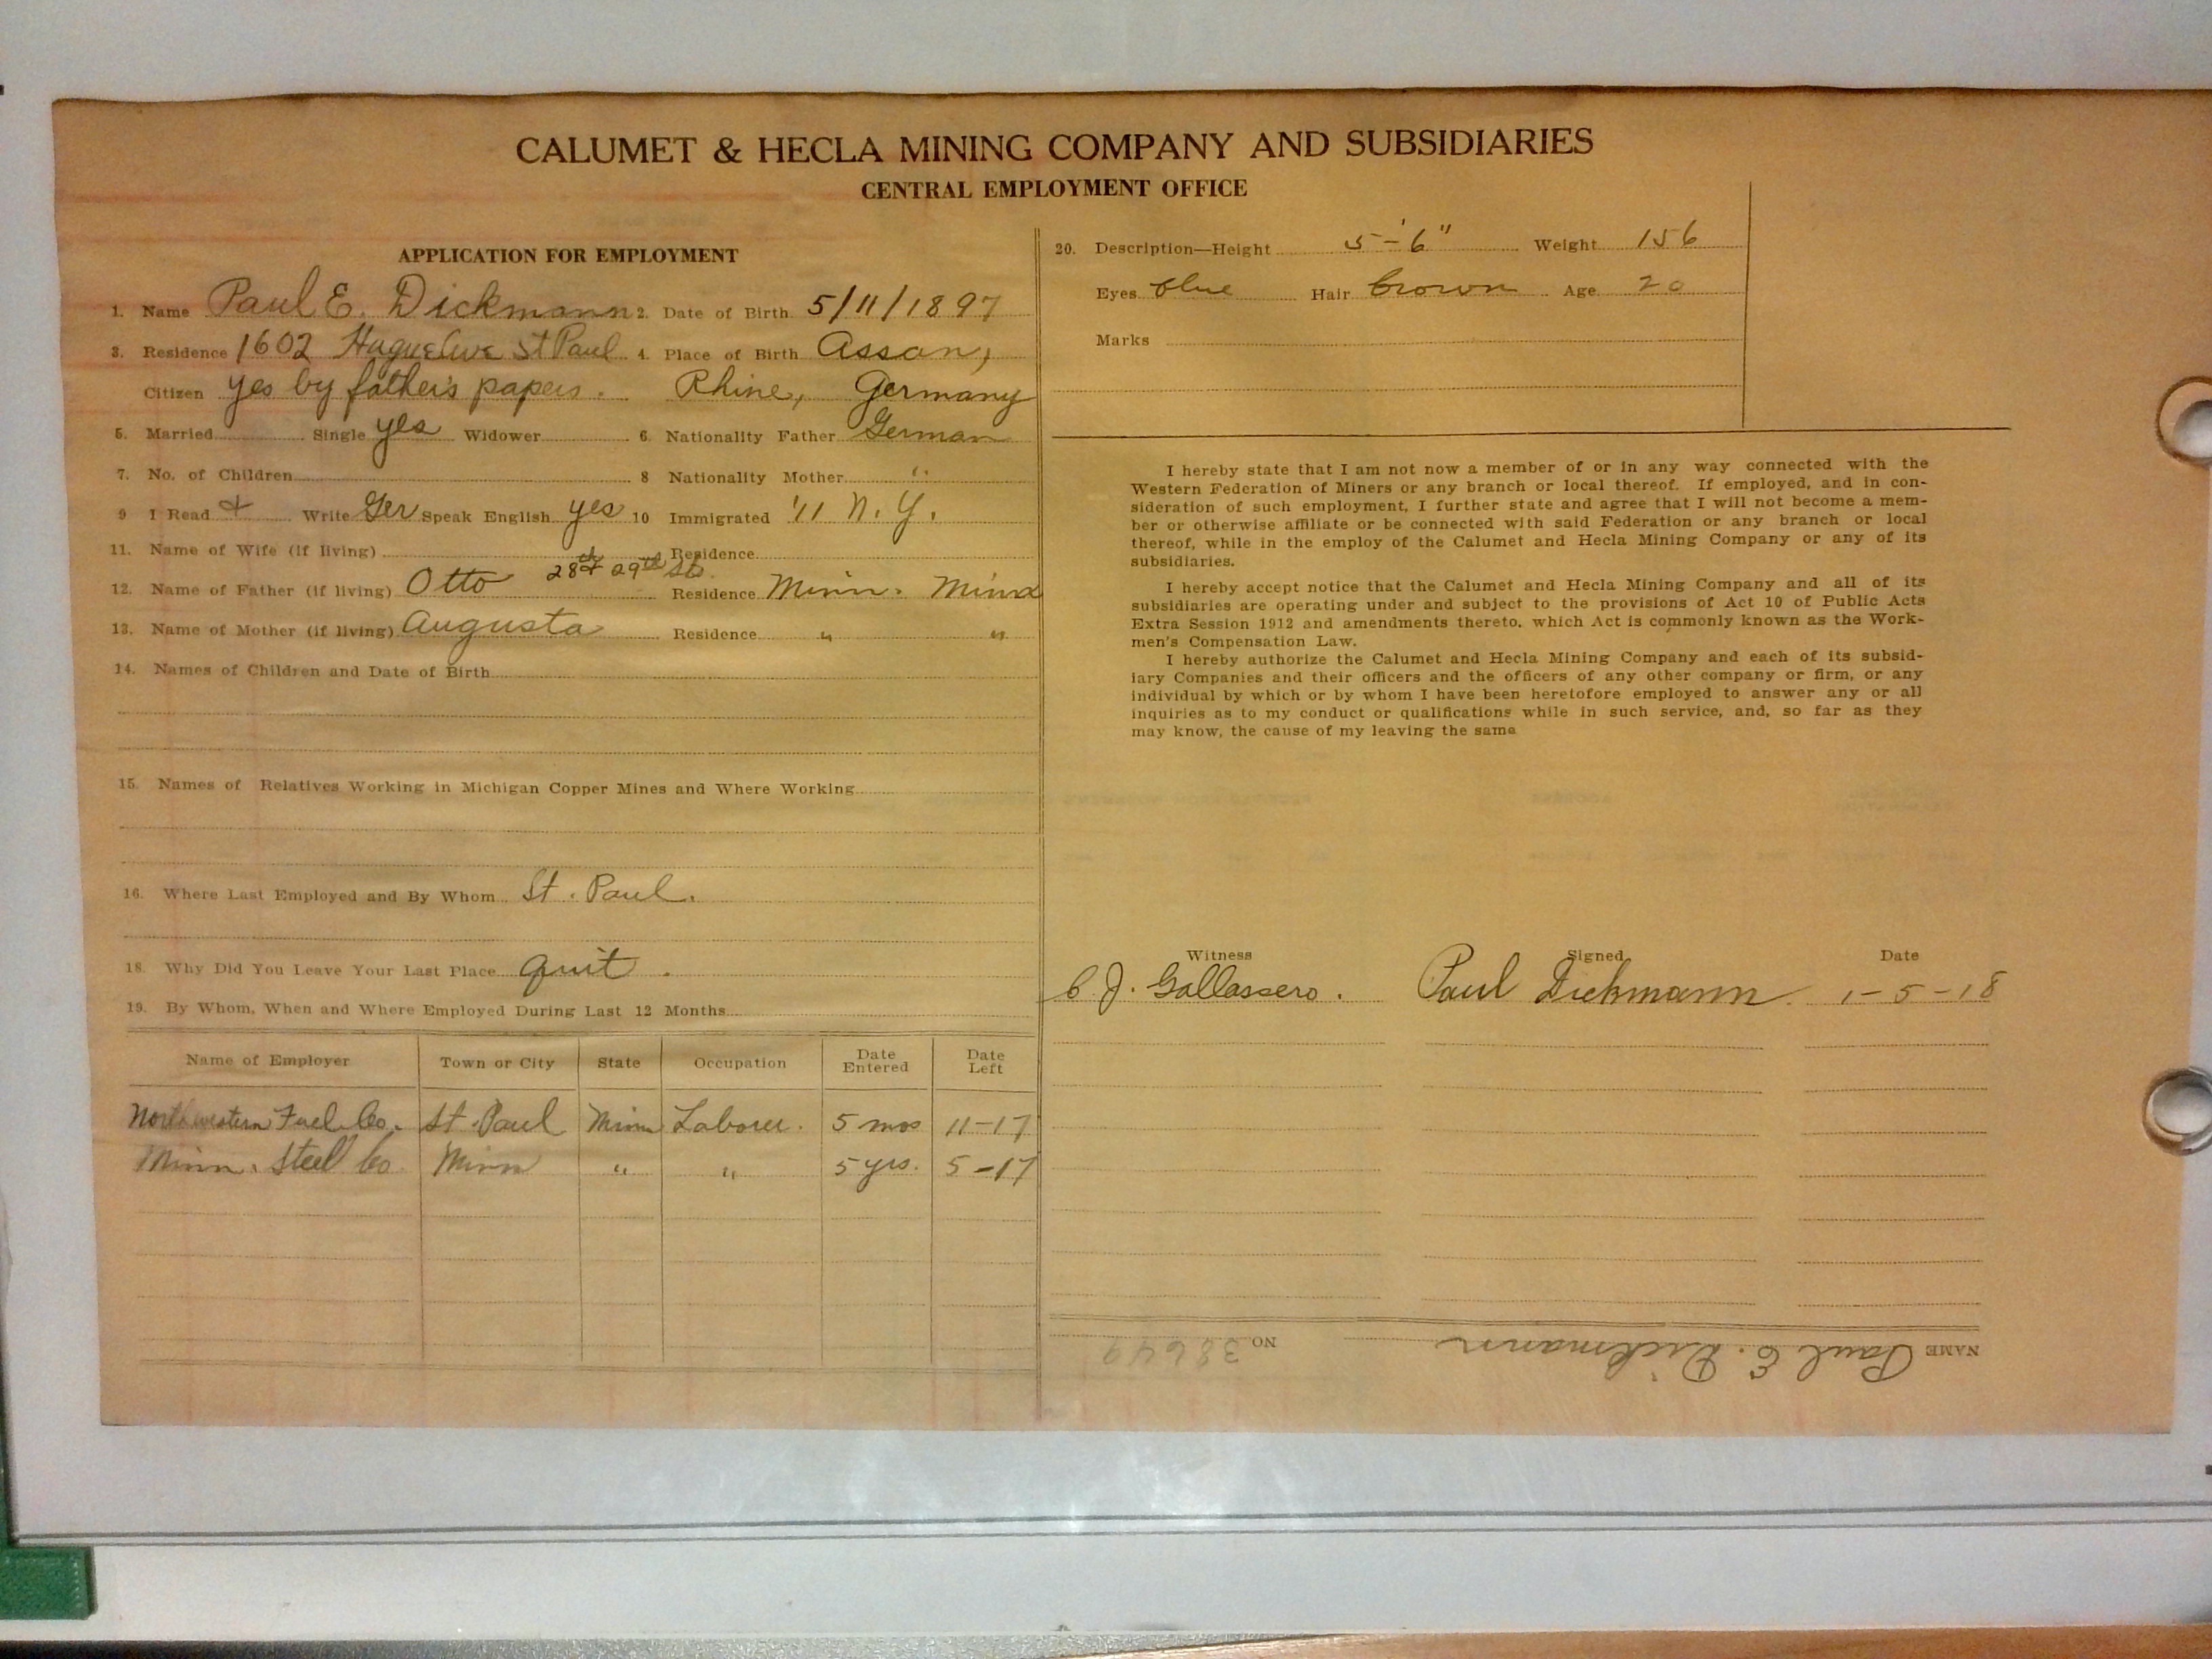 CALUMET & HECLA MINING COMPANY AND SUBSIDIARIES
CENTRAL EMPLOYMENT OFFICE
APPLICATION FOR EMPLOYMENT
1. Name Paul E. Dickmann 2. Date of Birth 5/11/1897
3. Residence 1602 Hague Ave St Paul 4. Place of Birth Assan,
Citizen yes by father's papers. Rhine, Germany
5. Married Single yes Widower 6. Nationality Father German
7. No. of Children 8 Nationality Mother "
9 I Read & Write Ger Speak English yes 10 Immigrated '11 N.Y.
11. Name of Wife (if living) Residence
28th & 29th St.
12. Name of Father (if living) Otto Residence Minn. Minn
13. Name of Mother (if living) Augusta Residence " "
14. Names of Children and Date of Birth
15. Names of Relatives Working in Michigan Copper Mines and Where Working
16. Where Last Employed and By Whom St. Paul.
18. Why Did You Leave Your Last Place quit.
19. By Whom, When and Where Employed During Last 12 Months
Name of Employer Town or City State Occupation Date Entered Date Left
Northwestern Fuel Co. St. Paul Minn Laborer. 5 mos 11-17
Minn. Steel Co. Minn " " 5 yrs. 5-17
20. Description—Height 5'-6" Weight 156
Eyes blue Hair brown Age 20
Marks
I hereby state that I am not now a member of or in any way connected with the
Western Federation of Miners or any branch or local thereof. If employed, and in con-
sideration of such employment, I further state and agree that I will not become a mem-
ber or otherwise affiliate or be connected with said Federation or any branch or local
thereof, while in the employ of the Calumet and Hecla Mining Company or any of its
subsidiaries.
I hereby accept notice that the Calumet and Hecla Mining Company and all of its
subsidiaries are operating under and subject to the provisions of Act 10 of Public Acts
Extra Session 1912 and amendments thereto, which Act is commonly known as the Work-
men's Compensation Law.
I hereby authorize the Calumet and Hecla Mining Company and each of its subsid-
iary Companies and their officers and the officers of any other company or firm, or any
individual by which or by whom I have been heretofore employed to answer any or all
inquiries as to my conduct or qualifications while in such service, and, so far as they
may know, the cause of my leaving the same
Witness Signed Date
C J. Gallassero. Paul Dickmann. 1-5-18
NAME Paul E. Dickmann NO 38649